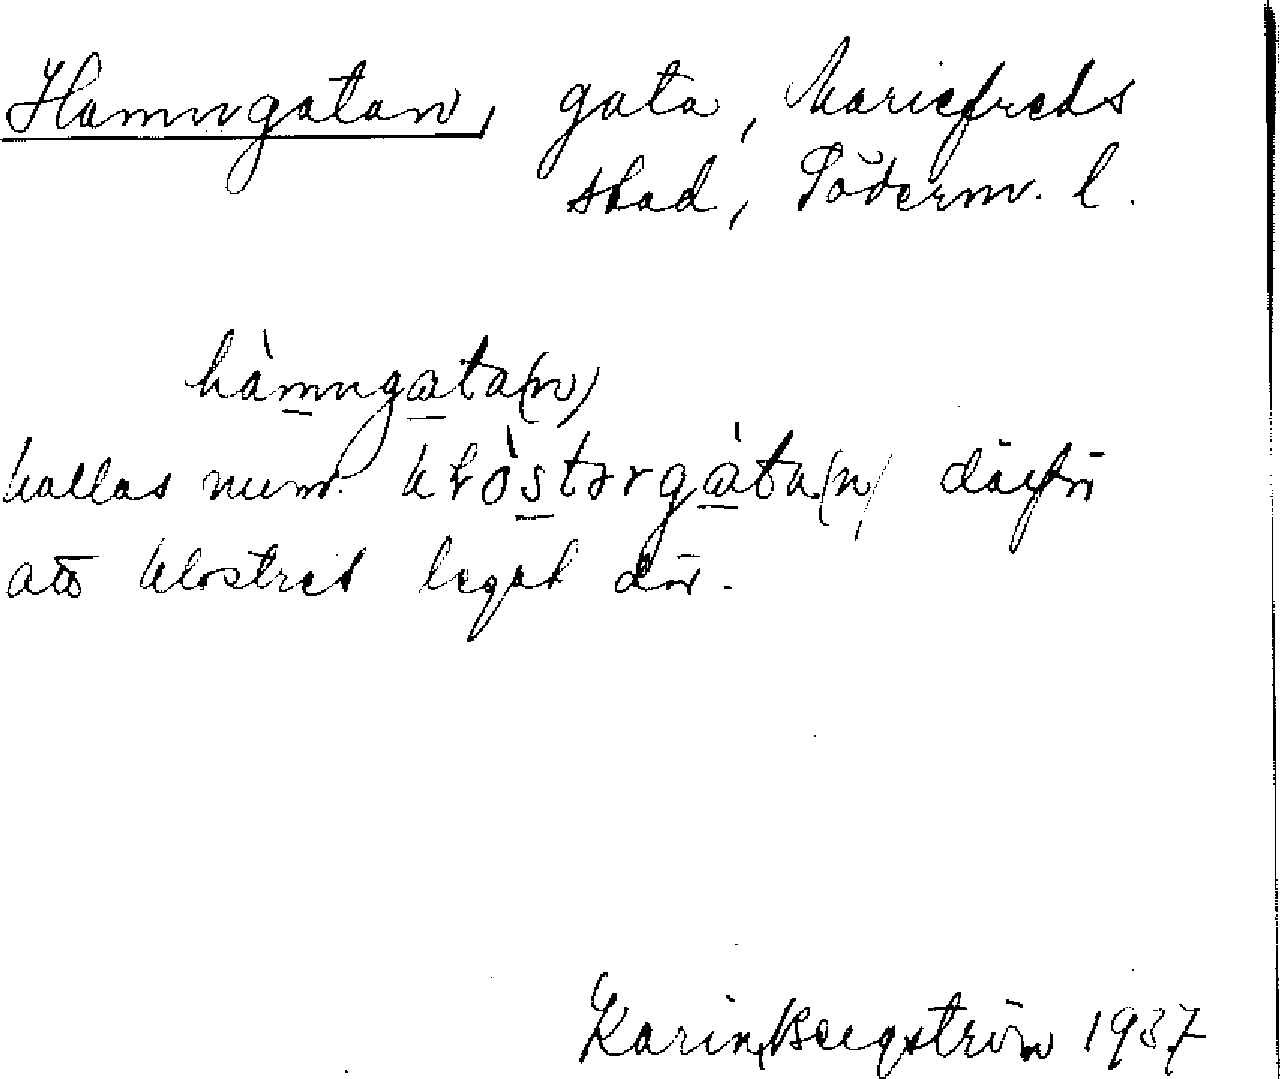 Hamngatan, gata, Mariefreds
stad, Söderm. l.
hàmngata(n)
kallas num. klòstərgàta(n) därför
att klostret legat där.
Karin Bergström 1937